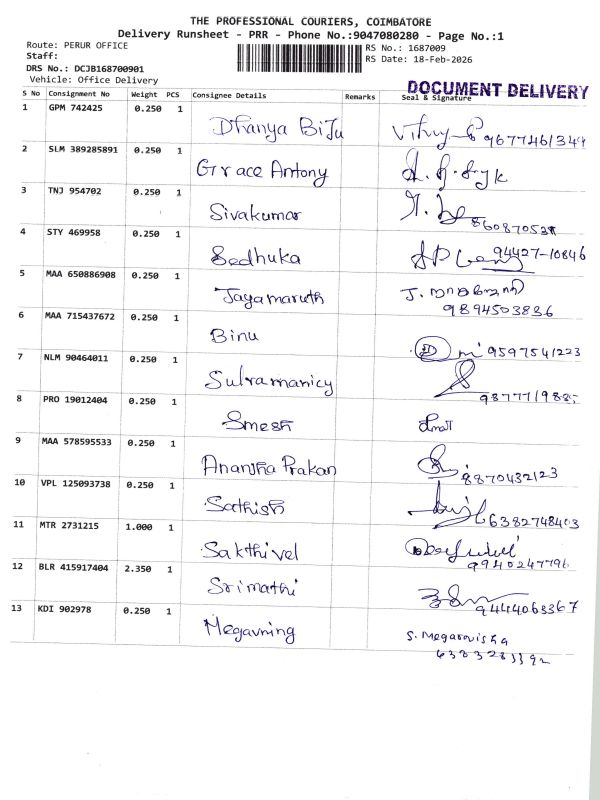 THE PROFESSIONAL COURIERS, COIMBATORE
Delivery Runsheet - PRR - Phone No.:9047080280 - Page No.:1
Route: PERUR OFFICE RS No.: 1687009
Staff: RS Date: 18-Feb-2026
DRS No.: DCJB168700901
Vehicle: Office Delivery DOCUMENT DELIVERY
S No Consignment No Weight PCS Consignee Details Remarks Seal & Signature
1 GPM 742425 0.250 1
Dhanya Biju 9677461344
2 SLM 389285891 0.250 1
Grace Antony
3 TNJ 954702 0.250 1
Sivakumar
4 STY 469958 0.250 1
Sedhuka 94427-10846
5 MAA 650886908 0.250 1
Jayamaruth J.
9894503836
6 MAA 715437672 0.250 1
Binu 9597541223
7 NLM 90464011 0.250 1
Sulramanicy
8 PRO 19012404 0.250 1
Smesh
9 MAA 578595533 0.250 1
Anansha Prakan 8870432123
10 VPL 125093738 0.250 1
Sathish 6382748403
11 MTR 2731215 1.000 1
Sakthivel 9940247796
12 BLR 415917404 2.350 1
Srimathi 9444063367
13 KDI 902978 0.250 1
Megavning S. Megarovisha